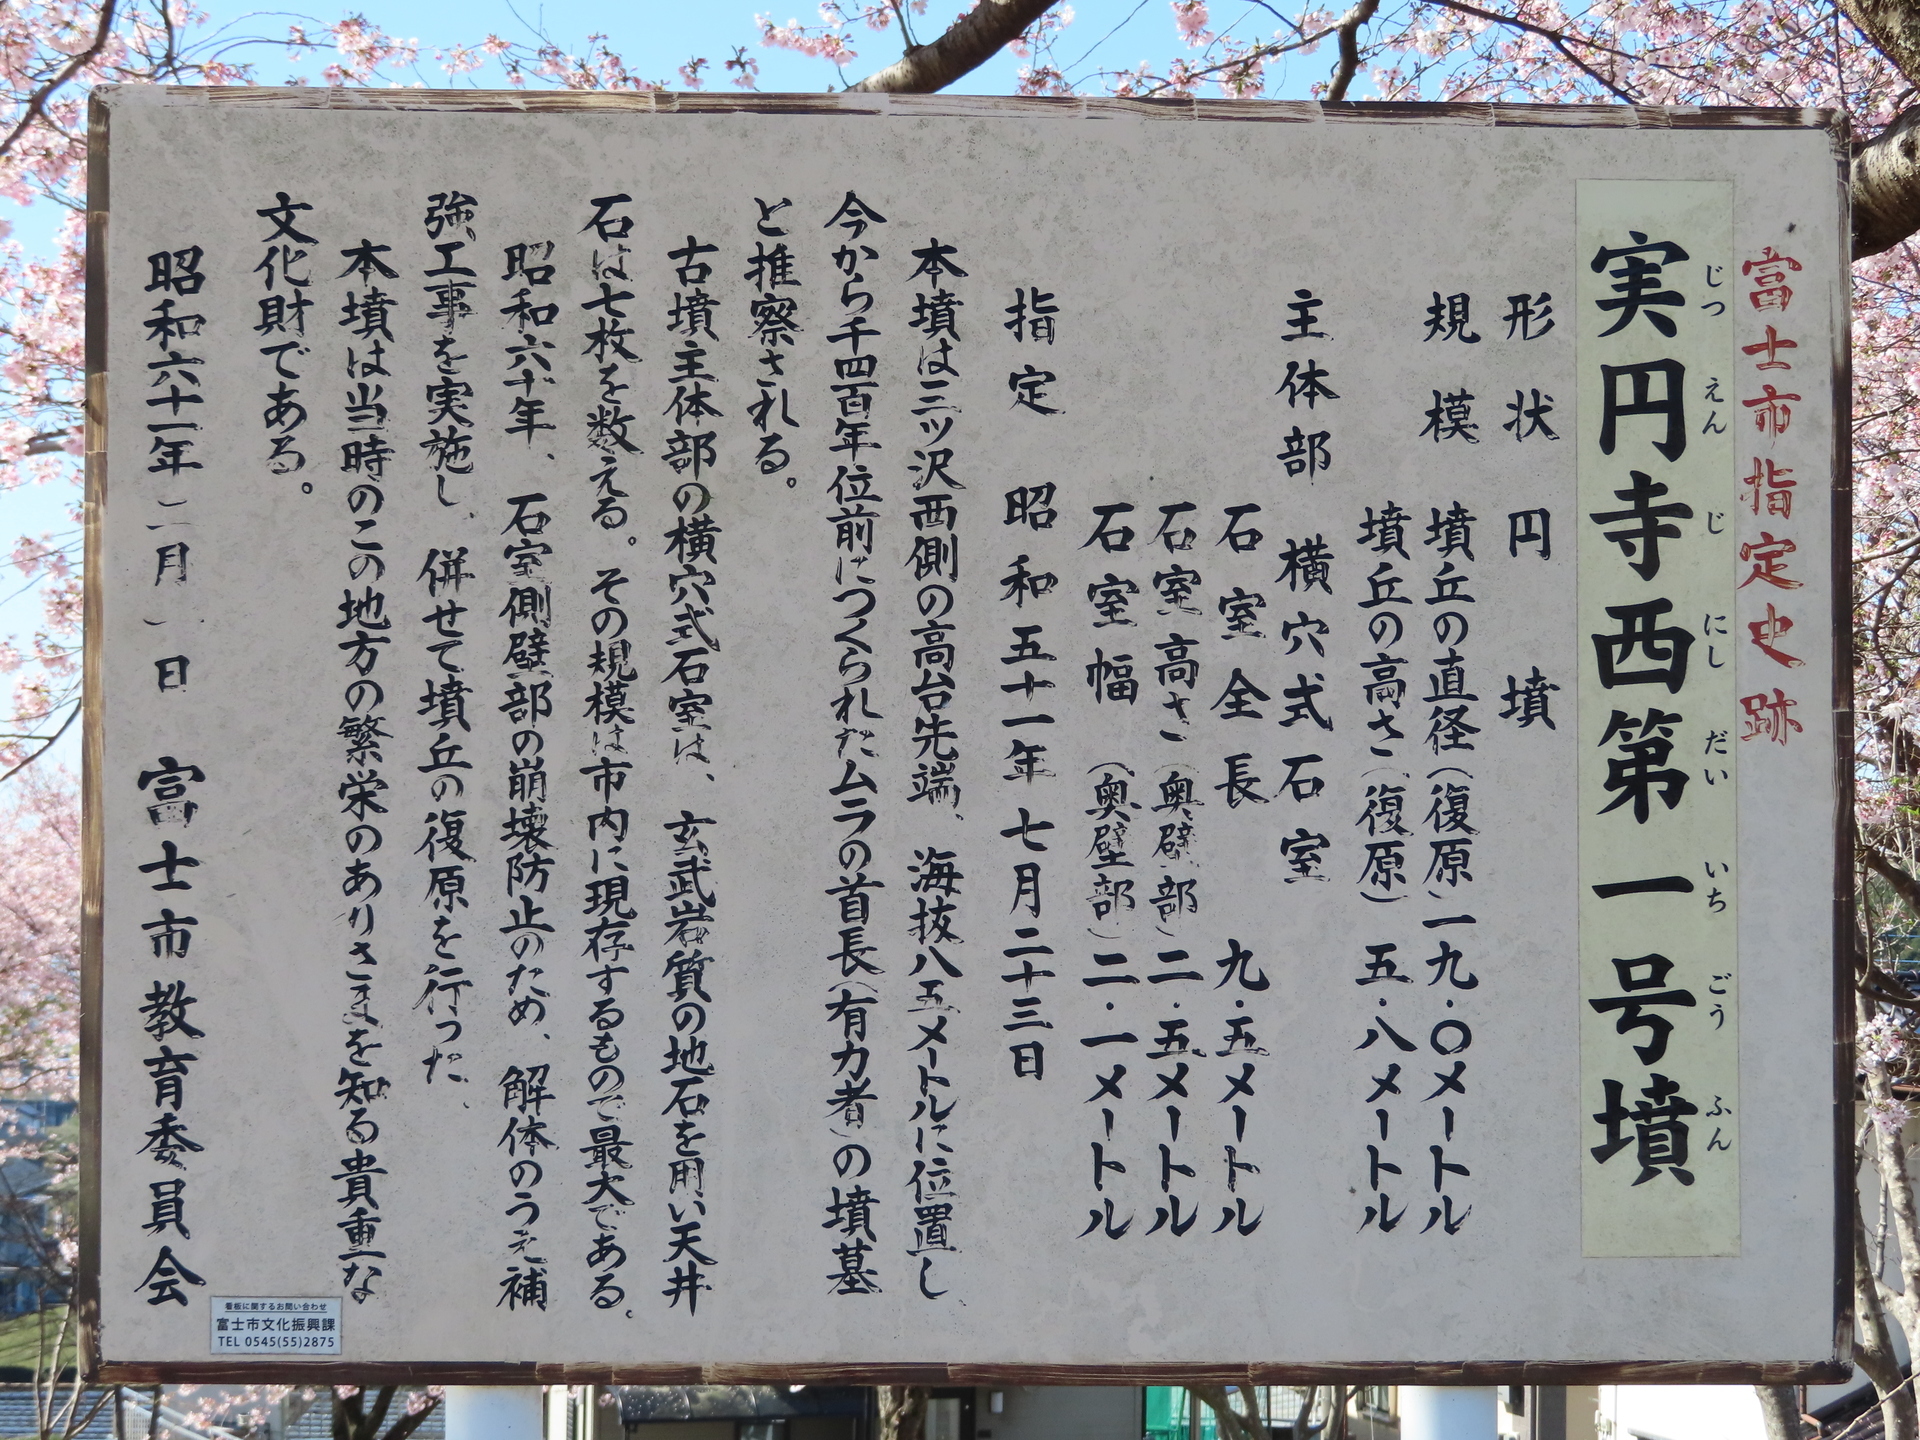 富士市指定史跡
実円寺西第一号墳
じつえんじにしだいいちごうふん
形状 円墳
規模 墳丘の直径(復原)一九・〇メートル
墳丘の高さ(復原) 五・八メートル
主体部 横穴式石室
石室全長 九・五メートル
石室高さ(奥壁部)二・五メートル
石室幅(奥壁部)二・一メートル
指定 昭和五十一年七月二十三日
本墳は三ツ沢西側の高台先端、海抜八五メートルに位置し
今から千四百年位前につくられたムラの首長(有力者)の墳墓
と推察される。
古墳主体部の横穴式石室は、玄武岩質の地石を用い天井
石は七枚を数える。その規模は市内に現存するもので最大である。
昭和六十年、石室側壁部の崩壊防止のため、解体のうえ補
強工事を実施し、併せて墳丘の復原を行った、
本墳は当時のこの地方の繁栄のありさまを知る貴重な
文化財である。
昭和六十一年 月 日 富士市教育委員会
看板に関するお問い合わせ
富士市文化振興課
TEL 0545(55)2875